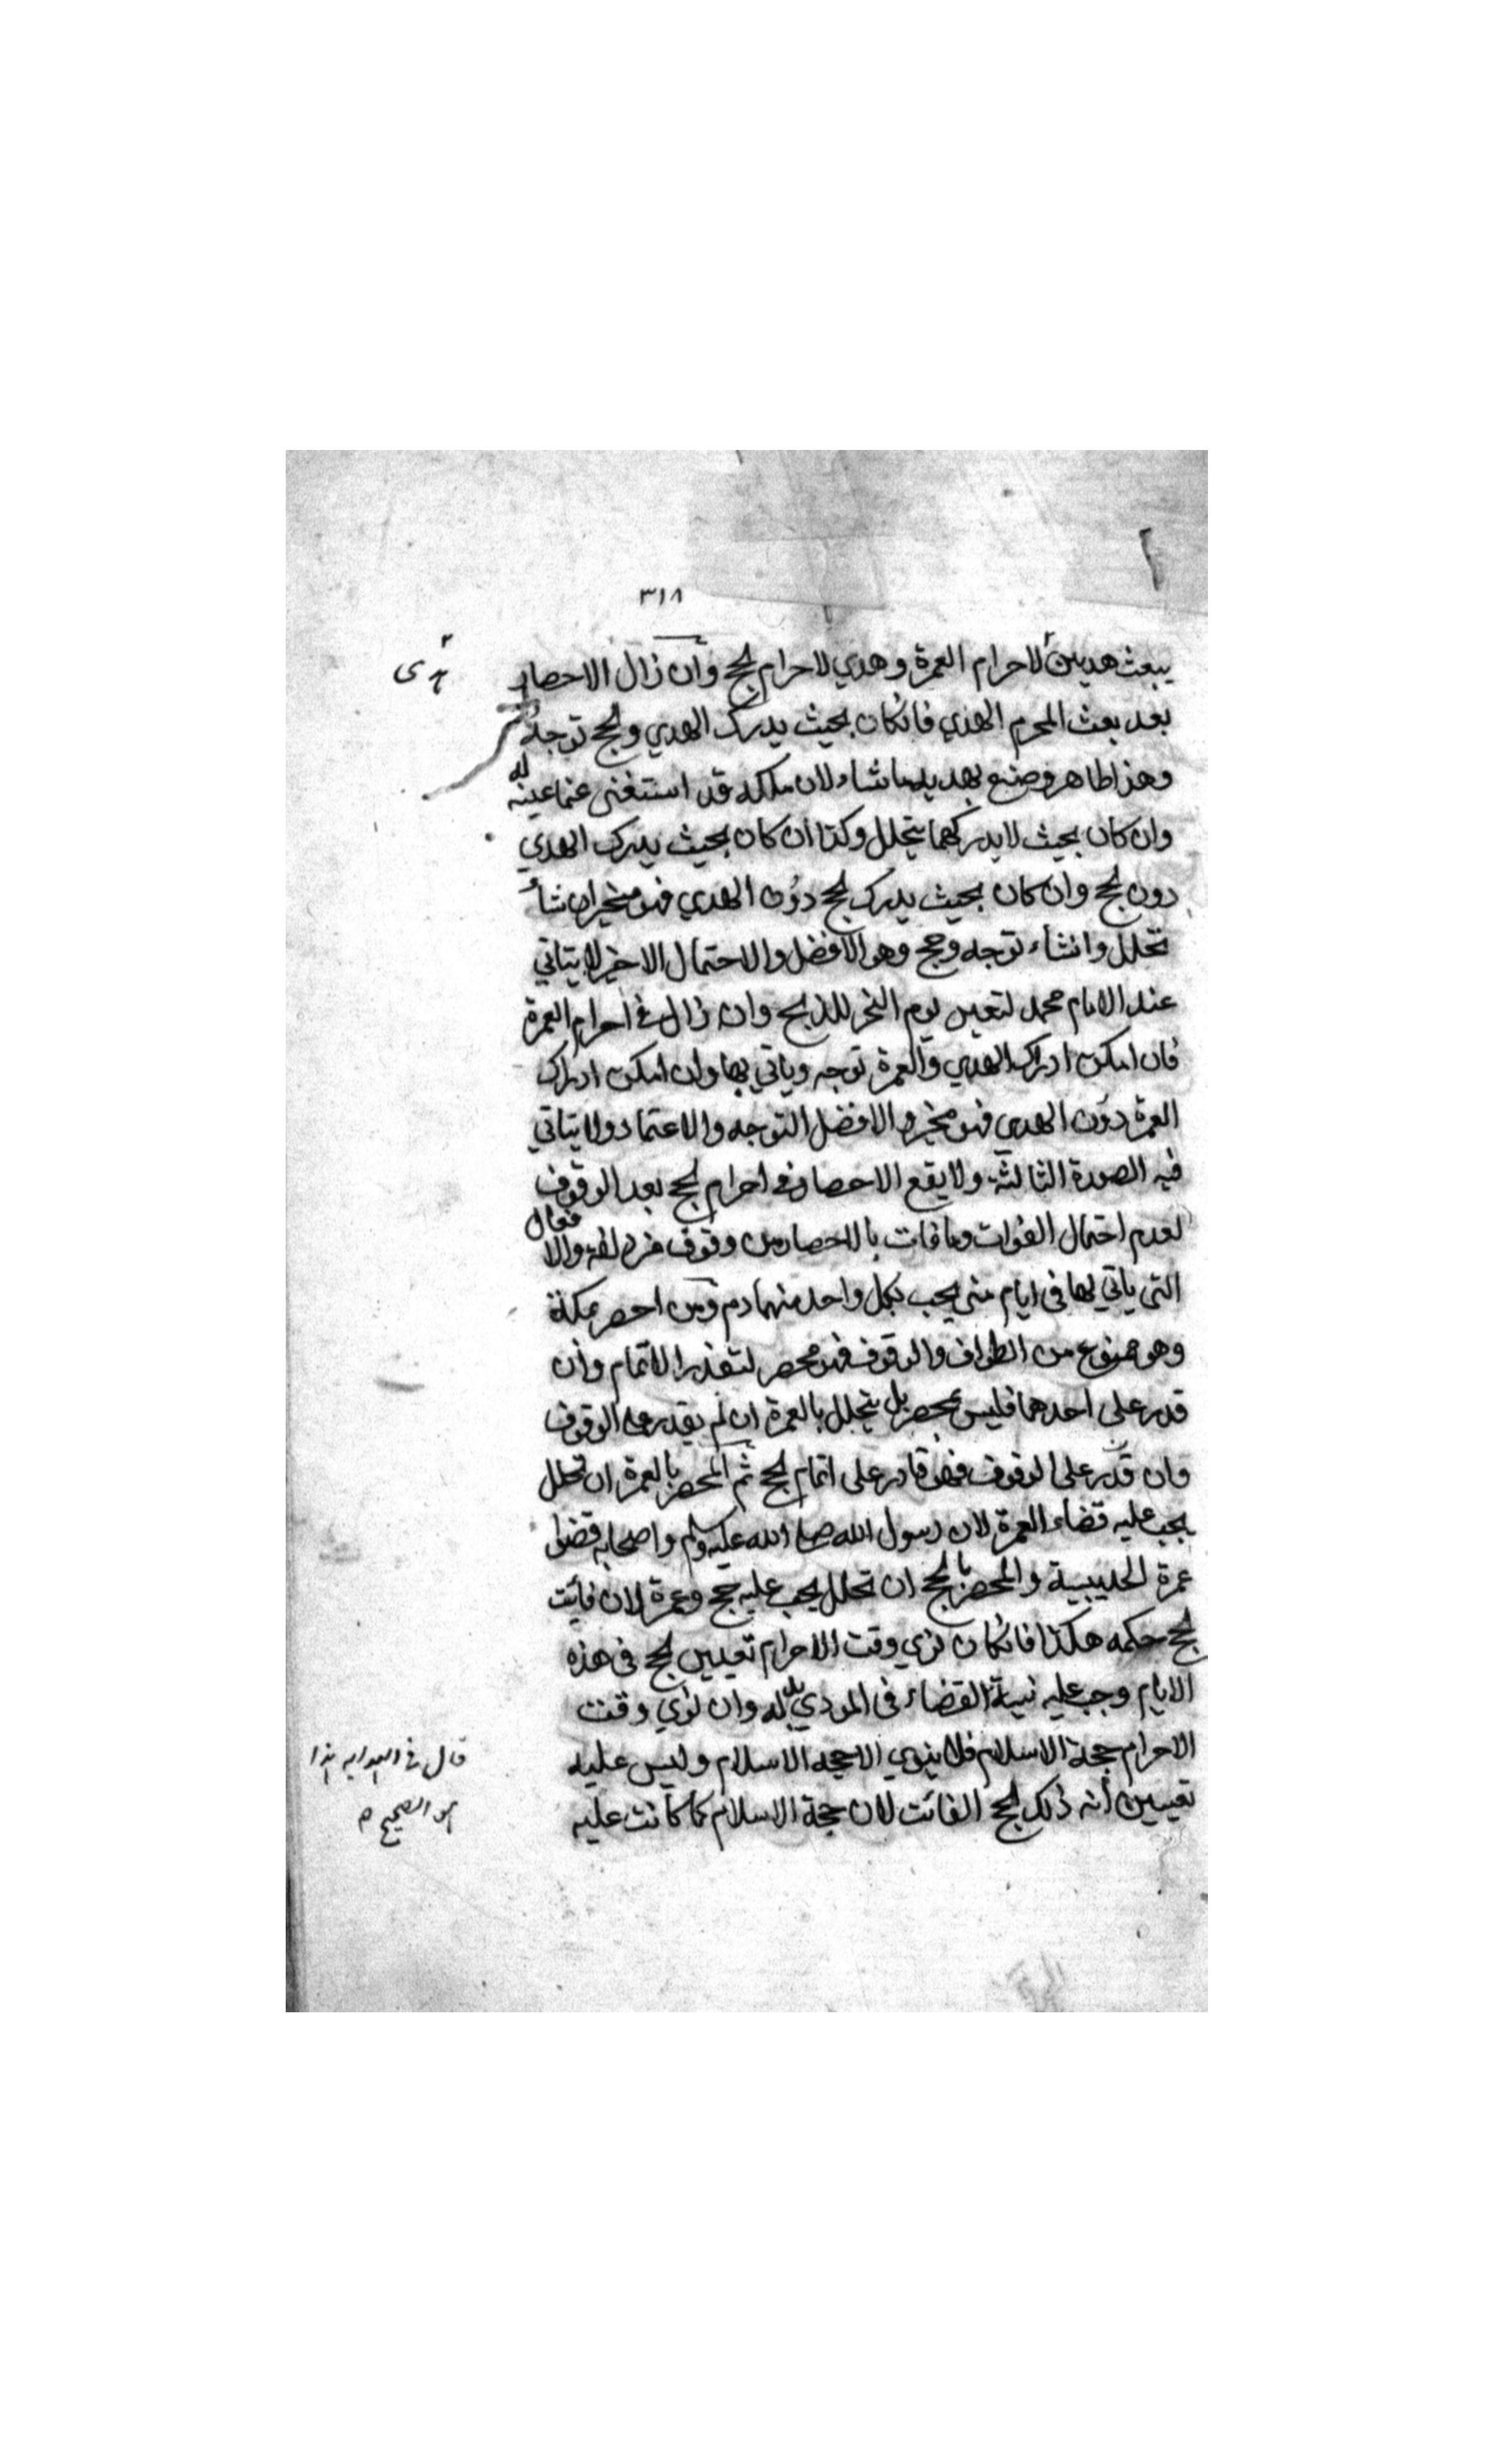 ٣١٨
يبعث هديين لاحرام العمرة وهدي لاحرام لحج وان زال الاحصار
هدى
بعد بعث المحرم الهدي فانكان بحيث يدرك الهدي ولحج توجه
وهذا ظاهر وصنع بهديه ما شاء لان ملكه قد استغنى عنما عينه له
وان كان بحيث لا يدركهما يتحلل وكذا ان كان بحيث يدرك الهدي
دون لحج وان كان بحيث يدرك لحج دون الهدي فهو مخير ان شاء
تحلل وانشاء توجه وحج وهو الافضل والاحتمال الاخير لا يتاتي
عند الامام محمد لتعين يوم النحر للذبح وان زال في احرام العمرة
فان امكن ادراك الهدي والعمرة توجه وياتي بها وان امكن ادراك
العمرة دون الهدي فهو مخير والافضل التوجه والاعتماد ولا يتاتي
فيه الصورة الثالثة ولا يقع الاحصار في احرام لحج بعد الوقوف
لعدم احتمال الفوات وما فات بالاحصار من وقوف مزدلفة والافعال
التي ياتي بها في ايام منى يجب بكل واحد منهما دم ومن احصر بمكة
وهو ممنوع من الطواف والوقوف فهو محصر لتعذر الاتمام وان
قدر على احدهما فليس بمحصر بل يتحلل بالعمرة ان لم يقدر على الوقوف
وان قدر على الوقوف فهو قادر على اتمام لحج ثم المحصر بالعمرة ان تحلل
يجب عليه قضاء العمرة لان رسول الله صلى الله عليه وسلم واصحابه قضوا
عمرة الحديبية والمحصر بالحج ان تحلل يجب عليه حج وعمرة لان فايت
لحج حكمه هكذا فانكان نوي وقت الاحرام تعيين لحج في هذه
الايام وجب عليه نية القضاء في المودي بدله وان نوي وقت
الاحرام حجة الاسلام فلا ينوي الا حجة الاسلام وليس عليه
تعيين انه ذلك لحج الفائت لان حجة الاسلام كما كانت عليه
قال في الهدايه هذا
هو الصحيح ه